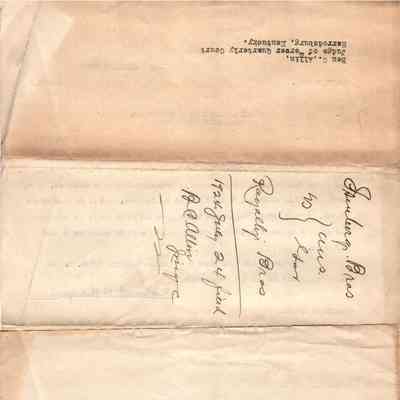 Ben C. Allin,
Judge of Mercer Quarterly Court
Harrodsburg, Kentucky.
Bros
vs
Royalty Bros
1924 July 24 filed
B C Allin
Judge